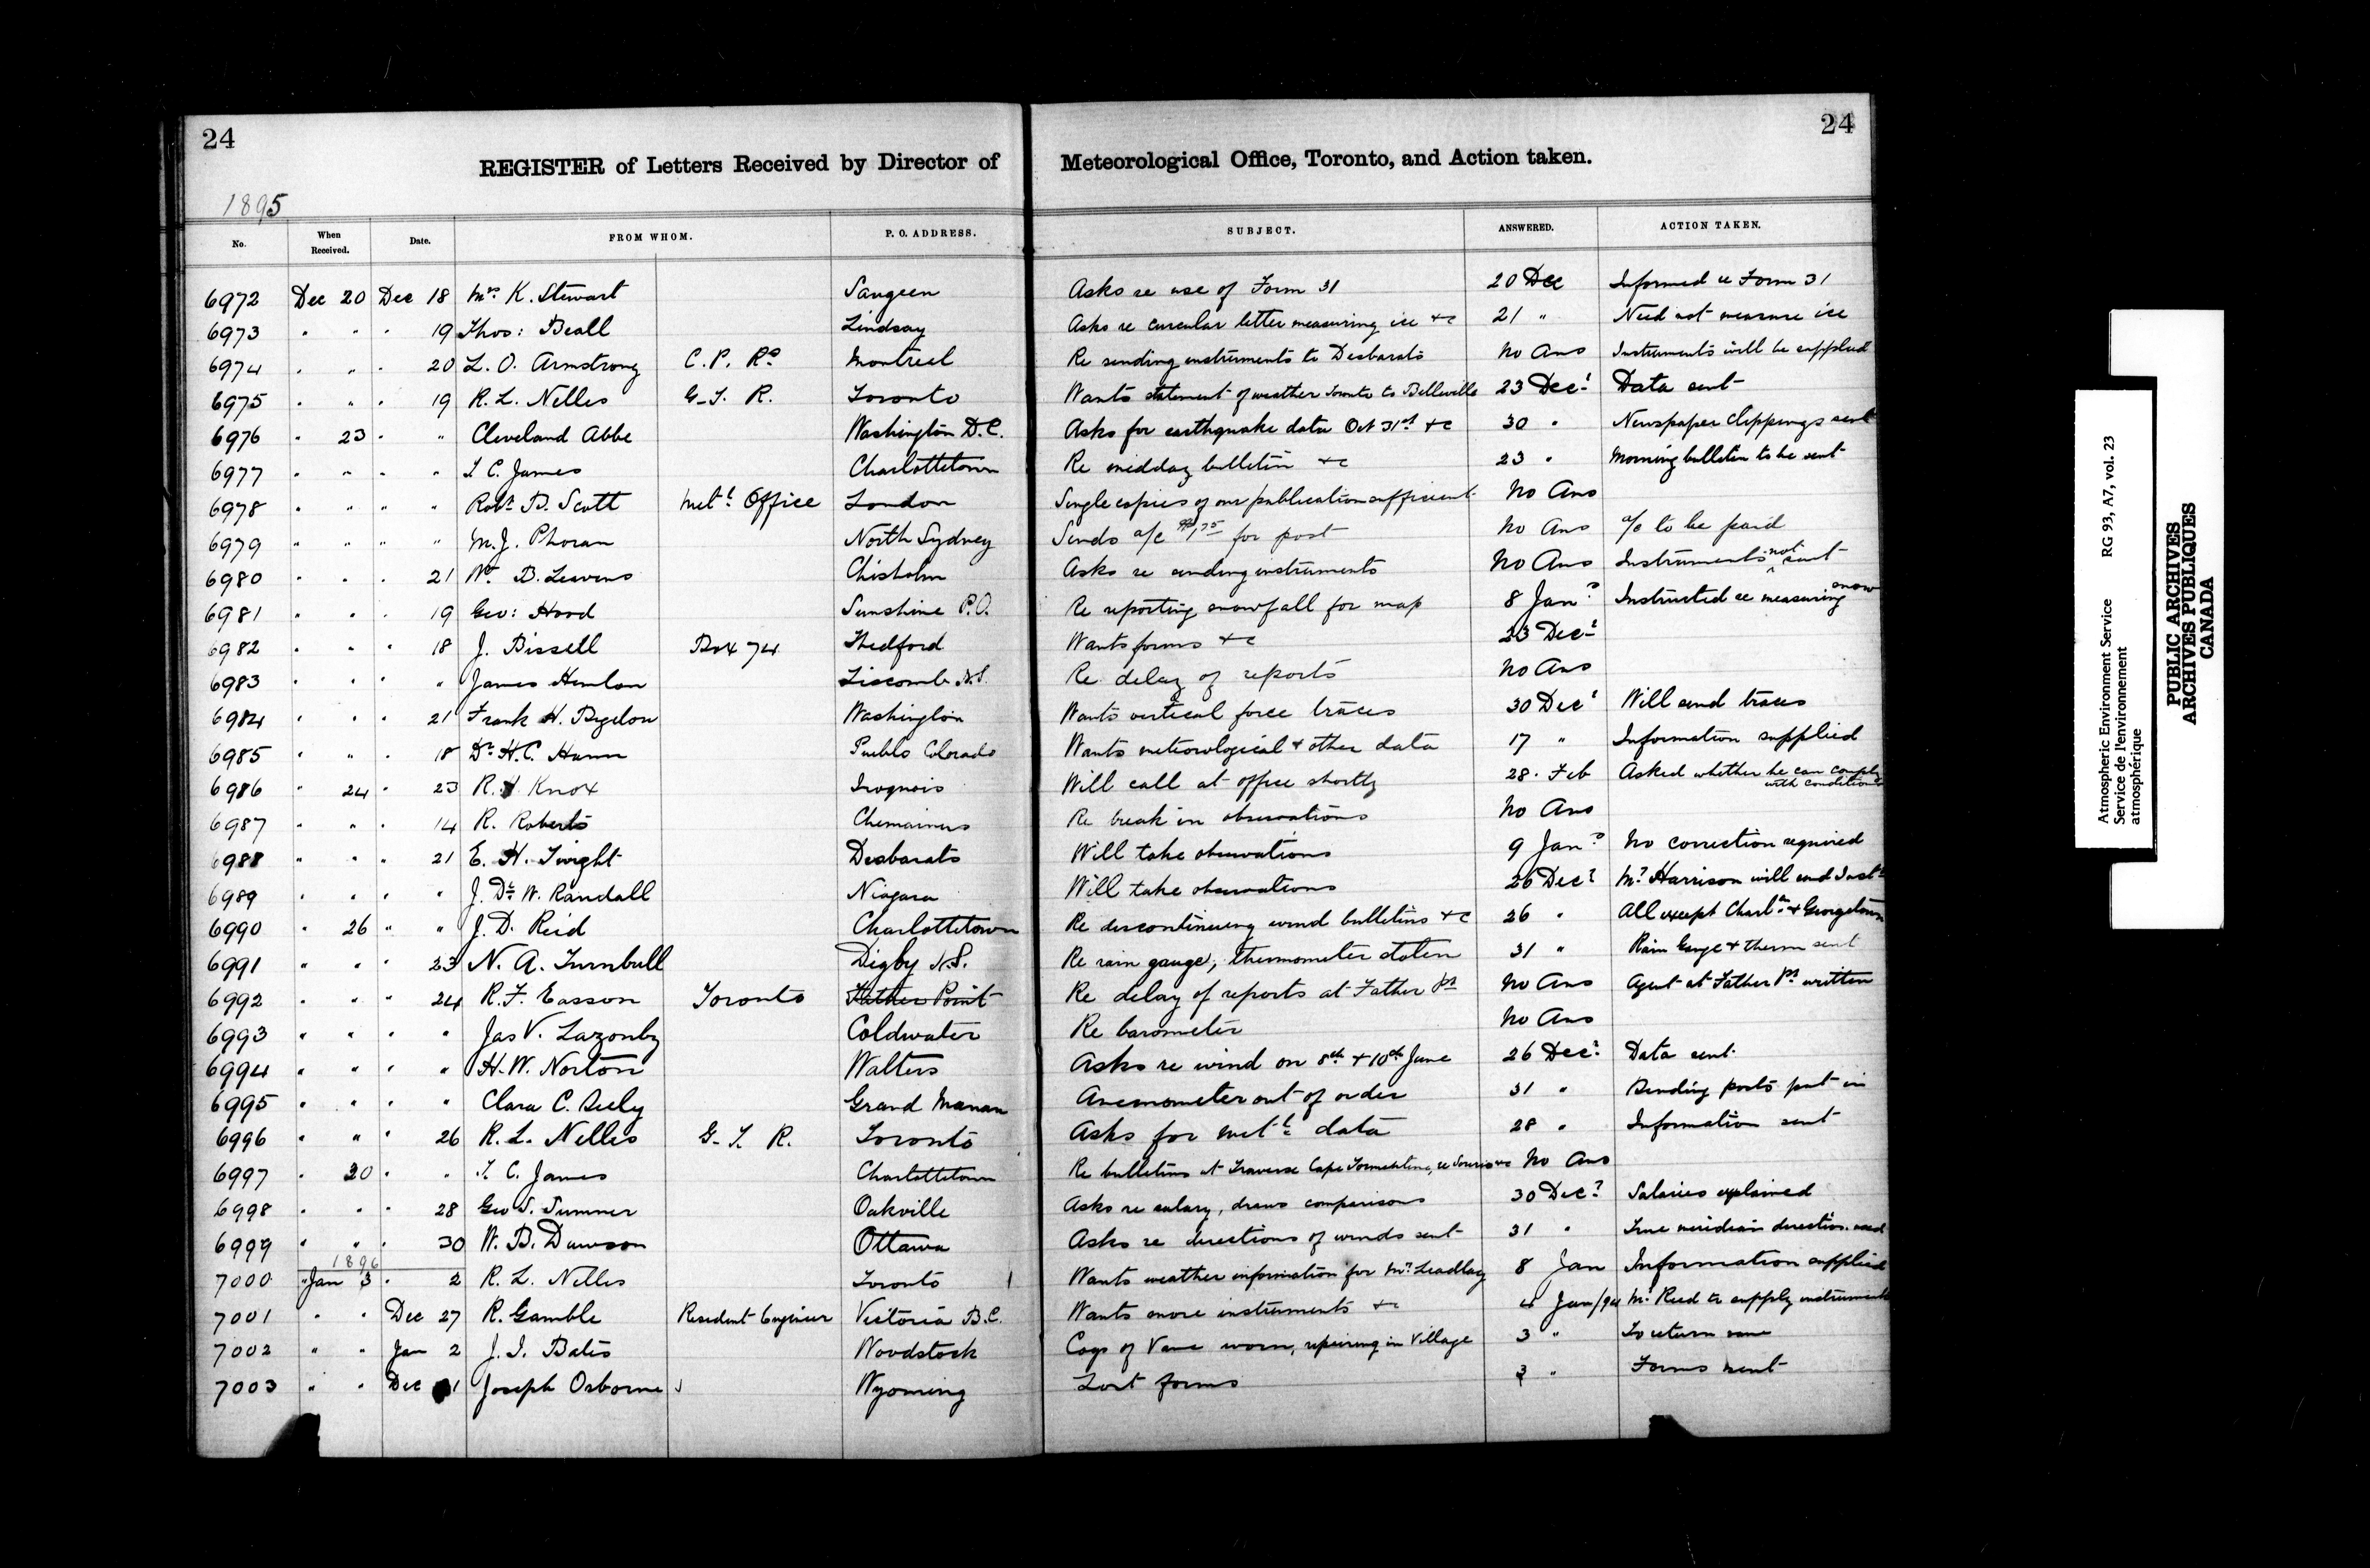 24
24
REGISTER of Letters Received by Director of Meteorological Office, Toronto, and Action taken.
1895
No. When Received. Date. FROM WHOM. P. O. ADDRESS. SUBJECT. ANSWERED. ACTION TAKEN.
6972 Dec 20 Dec 18 Mrs K. Stewart Saugeen Asks re use of Form 31 20 Dec Informed re Form 31
6973 " " " 19 Thos: Beall Lindsay Asks re circular letter measuring ice &c 21 " Need not measure ice
6974 " " " 20 L. O. Armstrong C. P. Ro Montreal Re sending instruments to Desbarats No Ans Instruments will be supplied
6975 " " " 19 R. L. Nelles G. T. R. Toronto Wants statement of weather Toronto to Belleville 23 Decr Data sent
6976 " 23 " " Cleveland Abbe Washington D.C. Asks for earthquake data Oct 31st &c 30 " Newspaper Clippings sent
6977 " " " " T C. James Charlottetown Re midday bulletin &c 23 " Morning bulletin to be sent
6978 " " " " Robt B. Scott Metl Office London Single copies of our publication sufficient No Ans
6979 " " " " M. J. Phoran North Sydney Sends a/c for post No Ans a/c to be paid
6980 " " " 21 Wm B. Leavens Chisholm Asks re sending instruments No Ans Instruments not sent
6981 " " " 19 Geo: Hood Sunshine P.O. Re reporting snowfall for map 8 Jany Instructed re measuring snow
6982 " " " 18 J. Bissell Box 74 Thedford Wants forms &c 23 Decr
6983 " " " " James Hemlon Liscomb N.S. Re delay of reports No Ans
6984 " " " 21 Frank H. Bigelow Washington Wants vertical force traces 30 Decr Will send traces
6985 " " " 18 Dr H. C. Pueblo Colorado Wants meteorological & other data 17 " Information supplied
6986 " 24 " 23 R. H Knox Iroquois Will call at office shortly 28 Feb Asked whether he can comply with conditions
6987 " " " 14 R. Roberts Chemainus Re break in observations No Ans
6988 " " " 21 E. H. Twight Desbarats Will take observations 9 Jany No correction required
6989 " " " " J. De W. Randall Niagara Will take observations 26 Decr Mr Harrison will send Insts
6990 " 26 " " J. D. Reid Charlottetown Re discontinuing wind bulletins &c 26 " All except Charltn & Georgetown
6991 " " " 23 N. A. Turnbull Digby N.S. Re rain gauge, thermometer stolen 31 " Rain Gauge & therm sent
6992 " " " 24 R. F. Easson Toronto Father Point Re delay of reports at Father Pt No Ans Agent at Father Pt written
6993 " " " " Jas V. Lazonby Coldwater Re barometer No Ans
6994 " " " " H. W. Norton Walters Asks re wind on 8th & 10th June 26 Decr Data sent
6995 " " " " Clara C. Seely Grand Manan Anemometer out of order 31 " Binding posts put in
6996 " " " 26 R. L. Nelles G. T. R. Toronto Asks for metl data 28 " Information sent
6997 " 30 " " T. C. James Charlottetown Re bulletins at Traverse Cape Tormentine, re Souris &c No Ans
6998 " " " 28 Geo S. Sumner Oakville Asks re salary, draws comparisons 30 Decr Salaries explained
6999 " " " 30 W. B. Dawson Ottawa Asks re directions of winds sent 31 " True meridian direction used
1896
7000 " Jan 3 " 2 R. L. Nelles Toronto Wants weather information for Mr Leadlay 8 Jan Information supplied
7001 " " Dec 27 R. Gamble Resident Engineer Victoria B.C. Wants more instruments &c 4 Jan/94 Mr Reed to supply instruments
7002 " " Jan 2 J. I. Bates Woodstock Cogs of Vane worn, repairing in Village 3 " To return vane
7003 " " Dec 31 Joseph Osborne Wyoming Lost forms 3 " Forms sent
Atmospheric Environment Service RG 93, A7, vol. 23
Service de l'environnement
atmosphérique
PUBLIC ARCHIVES
ARCHIVES PUBLIQUES
CANADA